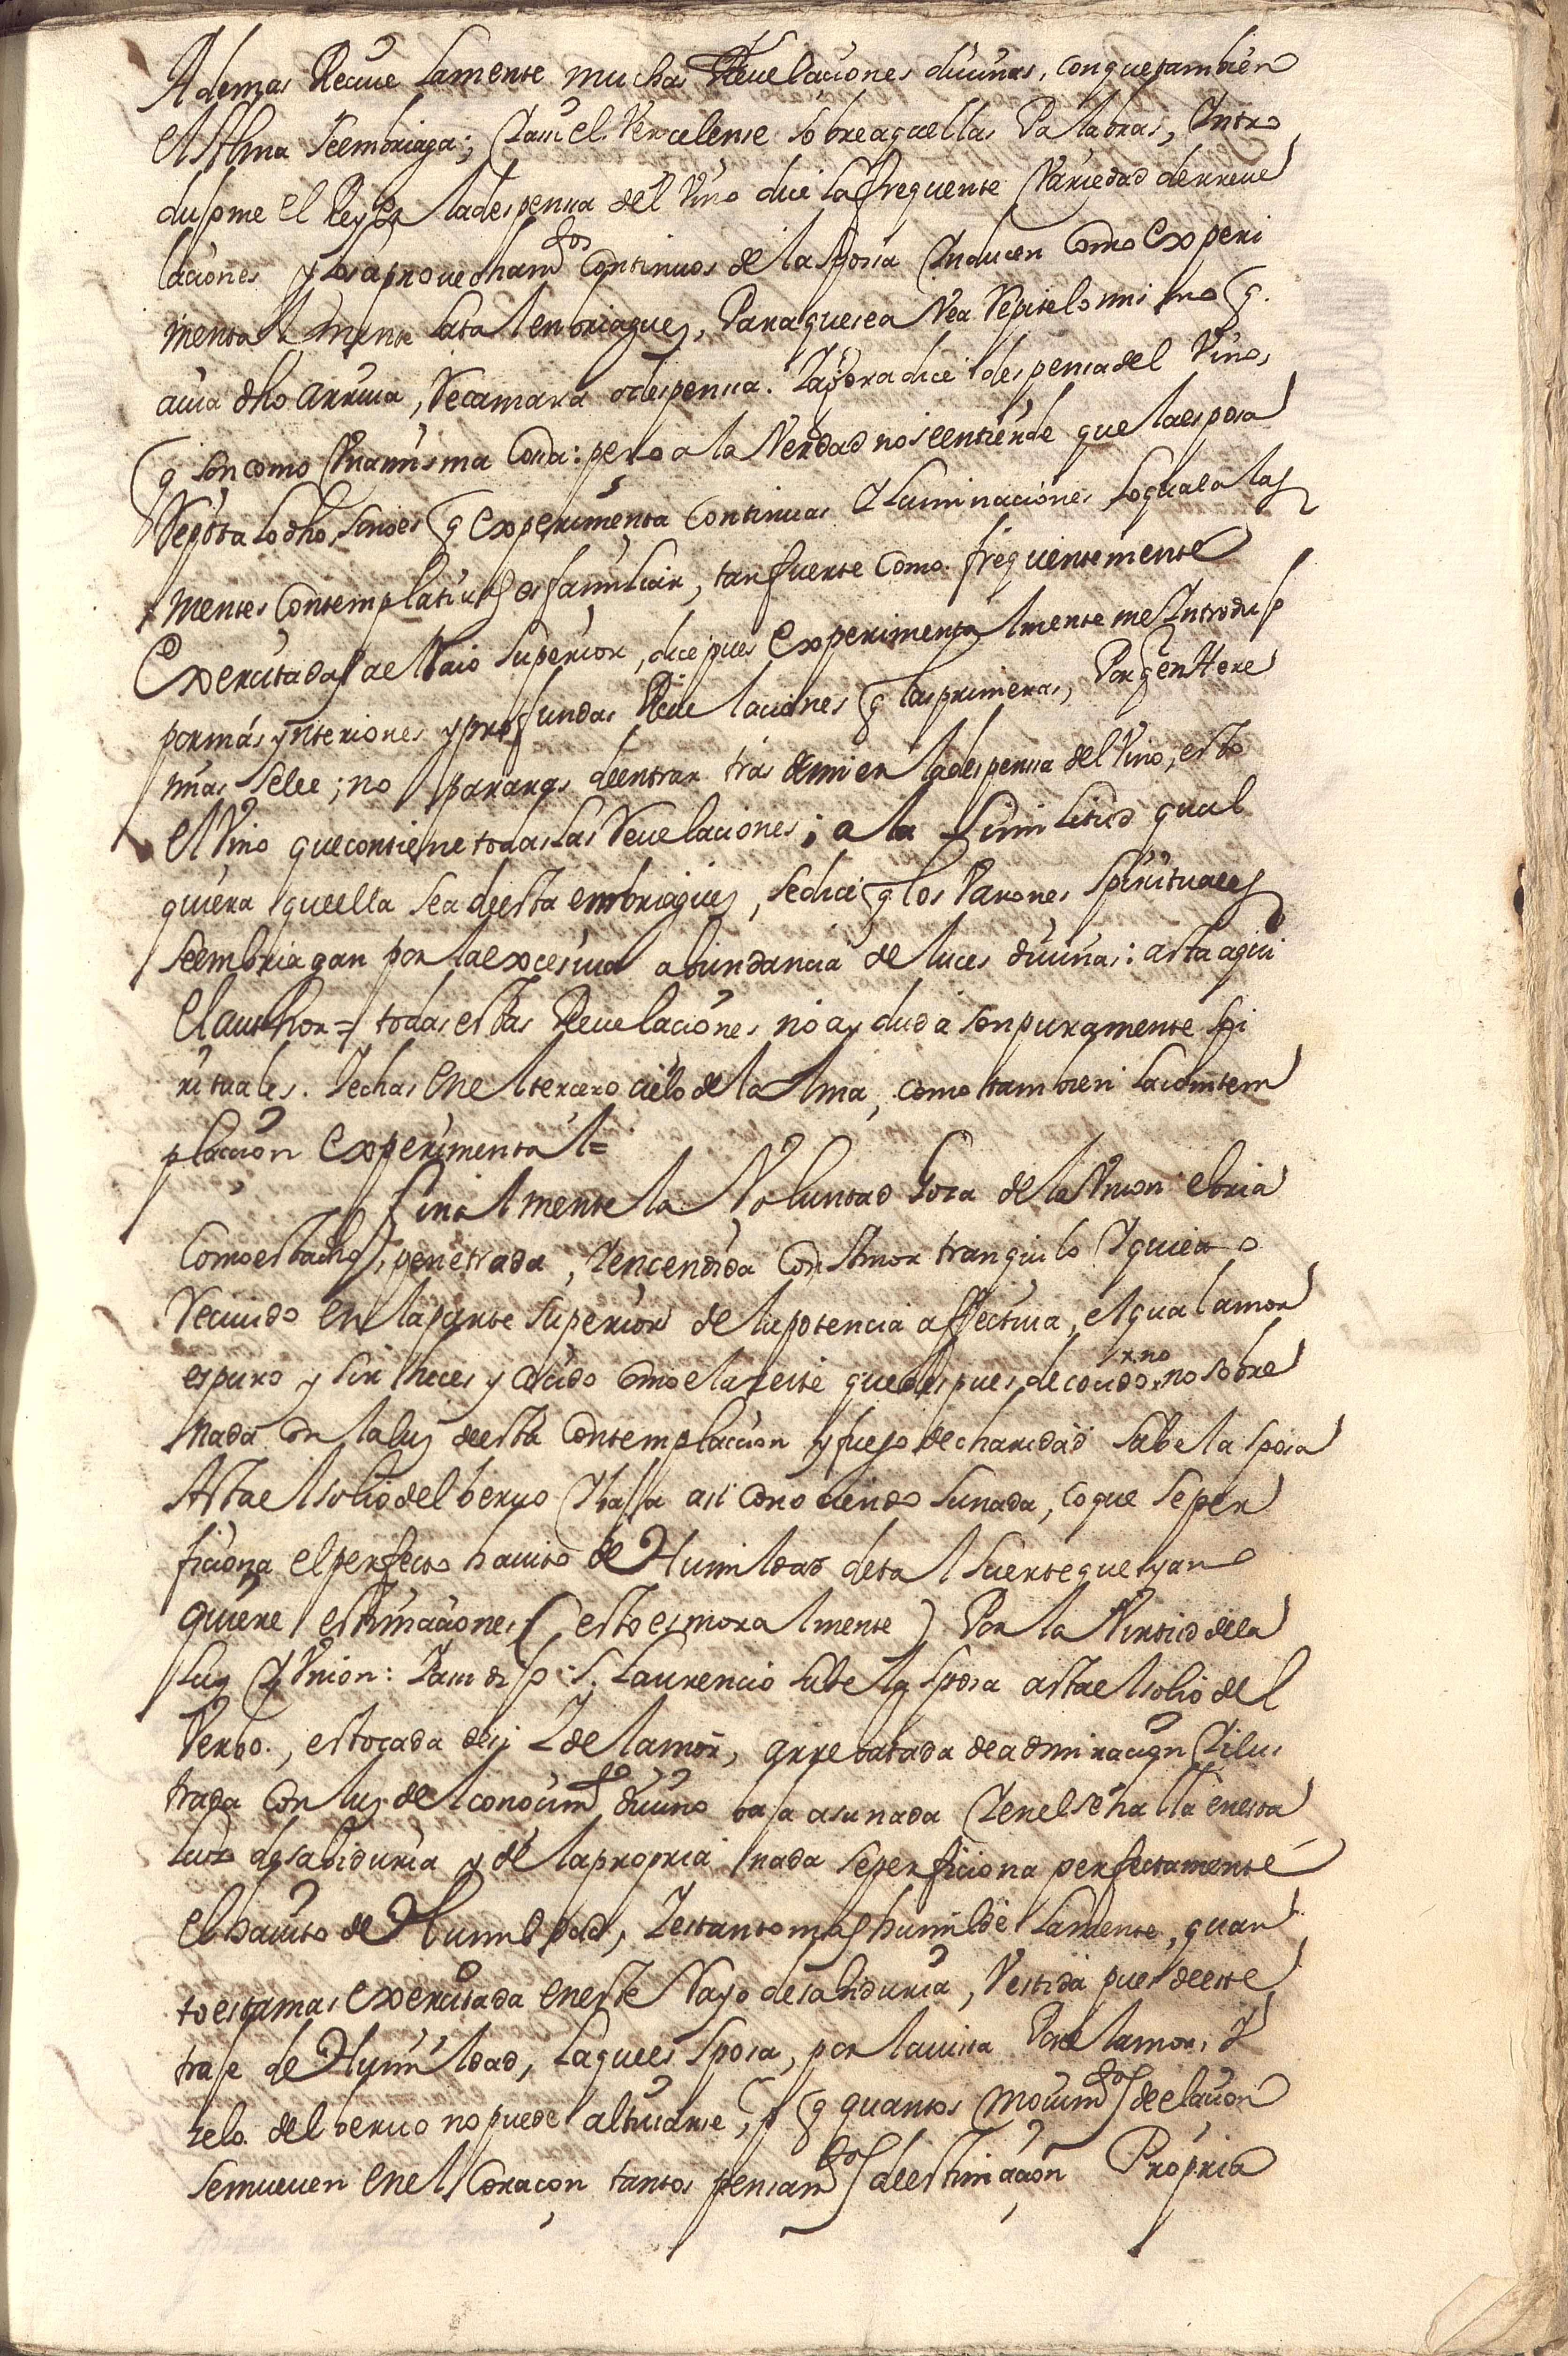 Ademas Reciue lamente muchas Reuelaciones diuinas, conquetambien
el Alma seembriaga; Yasi el Vercelense sobreaquellas Palabras, Intro
dujome el Rey en ladespensa del Vino dice la frequente Variedad derreue
laciones y los aprouechamtos continuos de la sposa Inducen como experi
mentalmente latal embriaguez, Paraquesea Vea Repitelo mismo q.
auia dho arriua, Recamara o despensa. Yahora dice despensa del Vino,
q son como Vnamisma Cosa: pero a la Verdad noseentiende que laesposa
Repita lo dho, sinoes q experimenta continuas Yluminaciones loquala las
mentes Contemplatiuas es familiar, tanfuerte como frequentemente
Exercitadas del Raio Superior, dice pues Experimentalmente me Introdujo
pormás ynteriores y profundas Reuelaciones q lasprimeras, Porq en Hiere
mias selee; no pararas deentrar tras de mi en ladespensa del Vino, esto
el Vino quecontiene todas las Reuelaciones; a la similitud qual
quiera queella sea deesta embriaguez, sedice q los Varones spirituales
seembriagan por la excesiua abundancia de luces diuinas: asta aqui
El author = todas estas Reuelaciones no ay duda son puramente spi
rituales. Yechas enel tercero cielo de la Alma, como tambien lacontem
placion Experimental=
Finalmente la Voluntad Goza de la Vnion ebria
Como estadho, penetrada, Yencendida con Amor tranquilo Yquieto
Reciuido en laparte superior de lapotencia affectiua, elqual amor
espuro y sin heces y acido como elaceite quedespues de cocido no sobre
nada con laluz deesta Contemplacion y fuego decharidad sube la sposa
Asta el solio del berbo Ybaja asi conociendo sunada, coque seper
ficiona elperfecto hauito de Humildad detal suerteque yano
quiere estimaciones (esto es moralmente) Por la Virtud dela
luz Y Vnion: Yasi dijo S. Laurencio sube la sposa astael solio del
Verbo., estocada desi Y del amor, arrebatada deadmiracion Yilus
trada con luz del conocimto diuino baja asunada Yenelsehalla enesta
luz desabiduria y de lapropria nada seperficiona perfectamente
el hauito de Humildad, Yestantomas humilde lamente, quan
toestamas exercitada eneste Rayo desabiduria, Vestida pues deeste
traje de Humildad, laquees sposa, por lauista Porel amor, Y
zelo del berbo no puede altiuarse, q quantos mouimtos deelacion
semueuen enel Coraçon tantos pensamtos deestimacion Propria